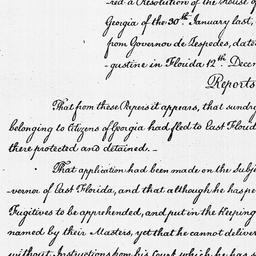 red a Resolution of the House of
Georgia of the 30th January last,
from Governor de Zespedes, date
gustine in Florida 12th Decem
Reports
That from these Papers it appears, that sundry
belonging to Citizens of Georgia had fled to East Florid
there protected and detained. -
That application had been made on the Subj
vernor of East Florida, and that although he has per
Fugitives to be apprehended, and put in the Keeping
named by their Masters, yet that he cannot deliver
without Instructions from his Court which he has s